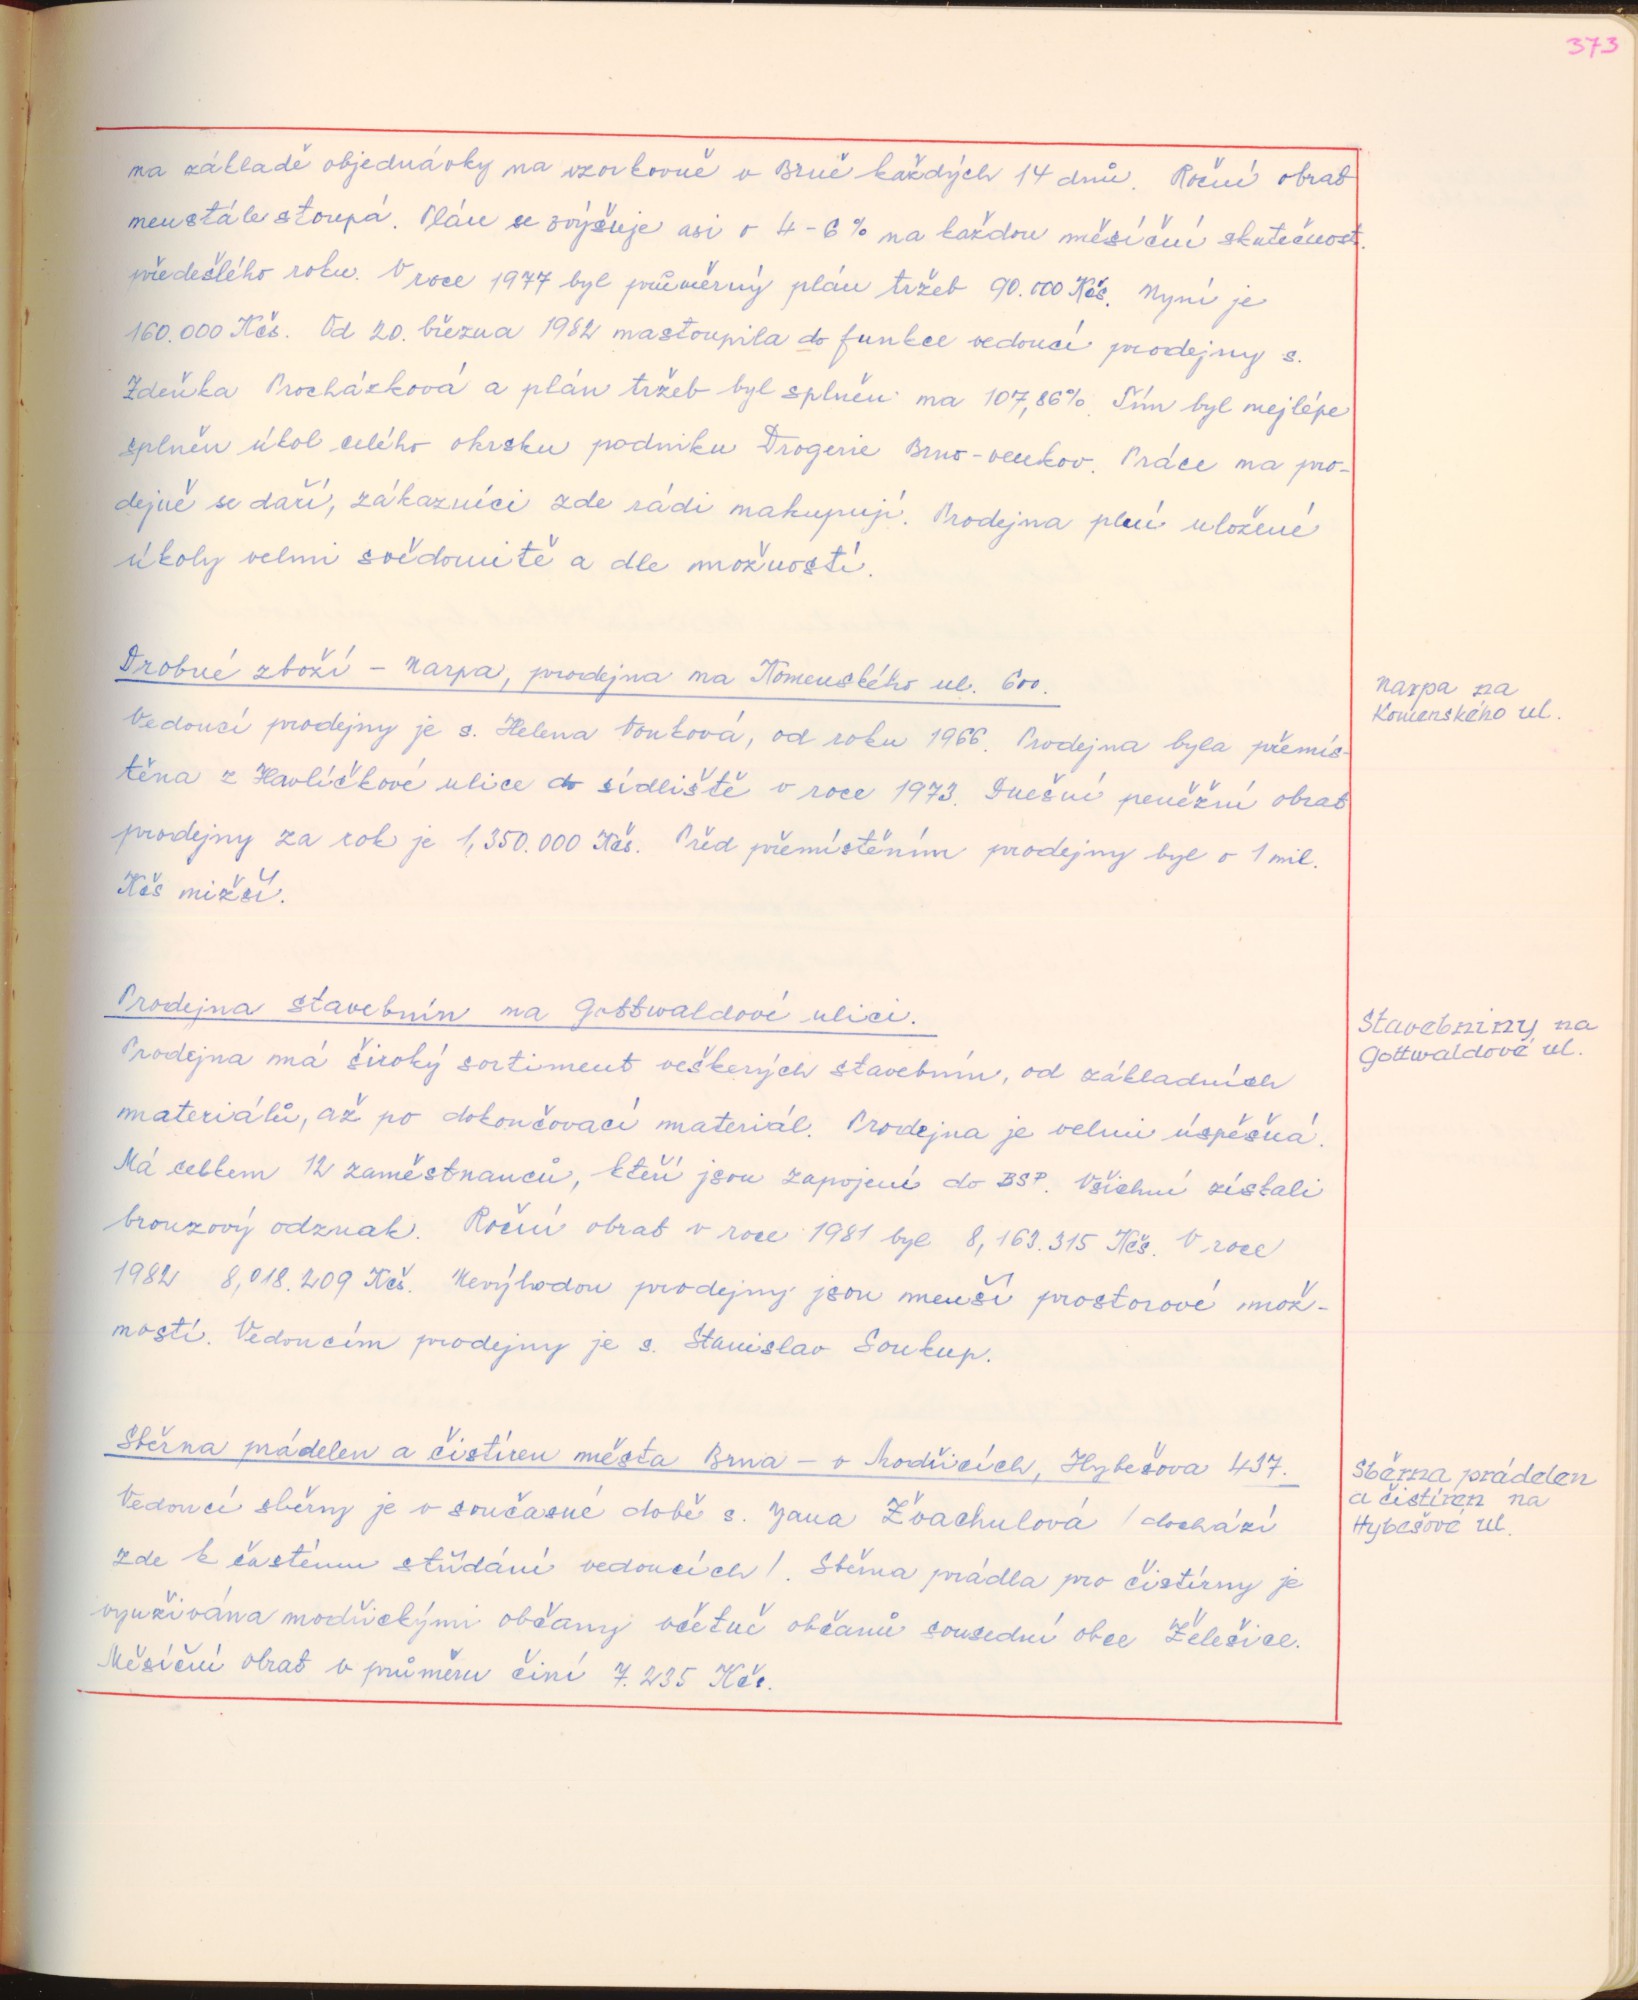 373
na základě objednávky na vzorkovně v Brně každých 14 dnů. Roční obrat
neustále stoupá. Plán se zvyšuje asi o 4-6% na každou měsíční skutečnost
předešlého roku. V roce 1977 byl průměrný plán tržeb 90.000 Kčs. Nyní je
160.000 Kčs. Od 20. března 1982 nastoupila do funkce vedoucí prodejny s.
Zdeňka Procházková a plán tržeb byl splněn na 107,86%. Tím byl nejlépe
splněn úkol celého okrsku podniku Drogerie Brno-venkov. Práce na pro-
dejně se daří, zákazníci zde rádi nakupují. Prodejna plní uložené
úkoly velmi svědomitě a dle možností.
Drobné zboží - Narpa, prodejna na Komenského ul. 600.
Narpa na
Komenského ul.
Vedoucí prodejny je s. Helena Vonková, od roku 1966. Prodejna byla přemís-
těna z Havlíčkové ulice do sídliště v roce 1973. Dnešní peněžní obrat
prodejny za rok je 1,350.000 Kčs. Před přemístěním prodejny byl o 1 mil.
Kčs nižší.
Prodejna stavebnin na Gottwaldové ulici.
Stavebniny na
Gottwaldové ul.
Prodejna má široký sortiment veškerých stavebnin, od základních
materiálů, až po dokončovací materiál. Prodejna je velmi úspěšná.
Má celkem 12 zaměstnanců, kteří jsou zapojeni do BSP. Všichni získali
bronzový odznak. Roční obrat v roce 1981 byl 8,163.315 Kčs. V roce
1982 8,018.209 Kčs. Nevýhodou prodejny jsou menší prostorové mož-
nosti. Vedoucím prodejny je s. Stanislav Soukup.
Sběrna prádelen a čistíren města Brna - v Modřicích, Hybešova 437.
Sběrna prádelen
a čistíren na
Hybešově ul.
Vedoucí sběrny je v současné době s. Jana Žvachulová /dochází
zde k častému střídání vedoucích/. Sběrna prádla pro čistírny je
využívána modřickými občany včetně občanů sousední obce Želešice.
Měsíční obrat v průměru činí 7.235 Kčs.